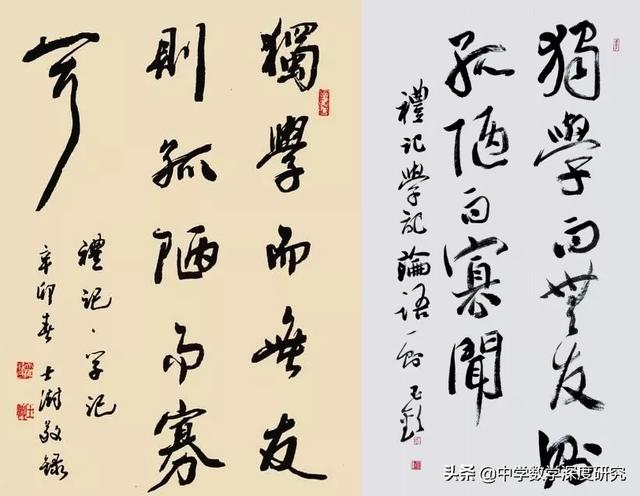 獨學而無友
則孤陋而寡
聞
禮記·学记
辛卯春 士澍敬録
獨學而無友則
孤陋而寡聞
禮记學記 論語一則
头条 @中学数学深度研究